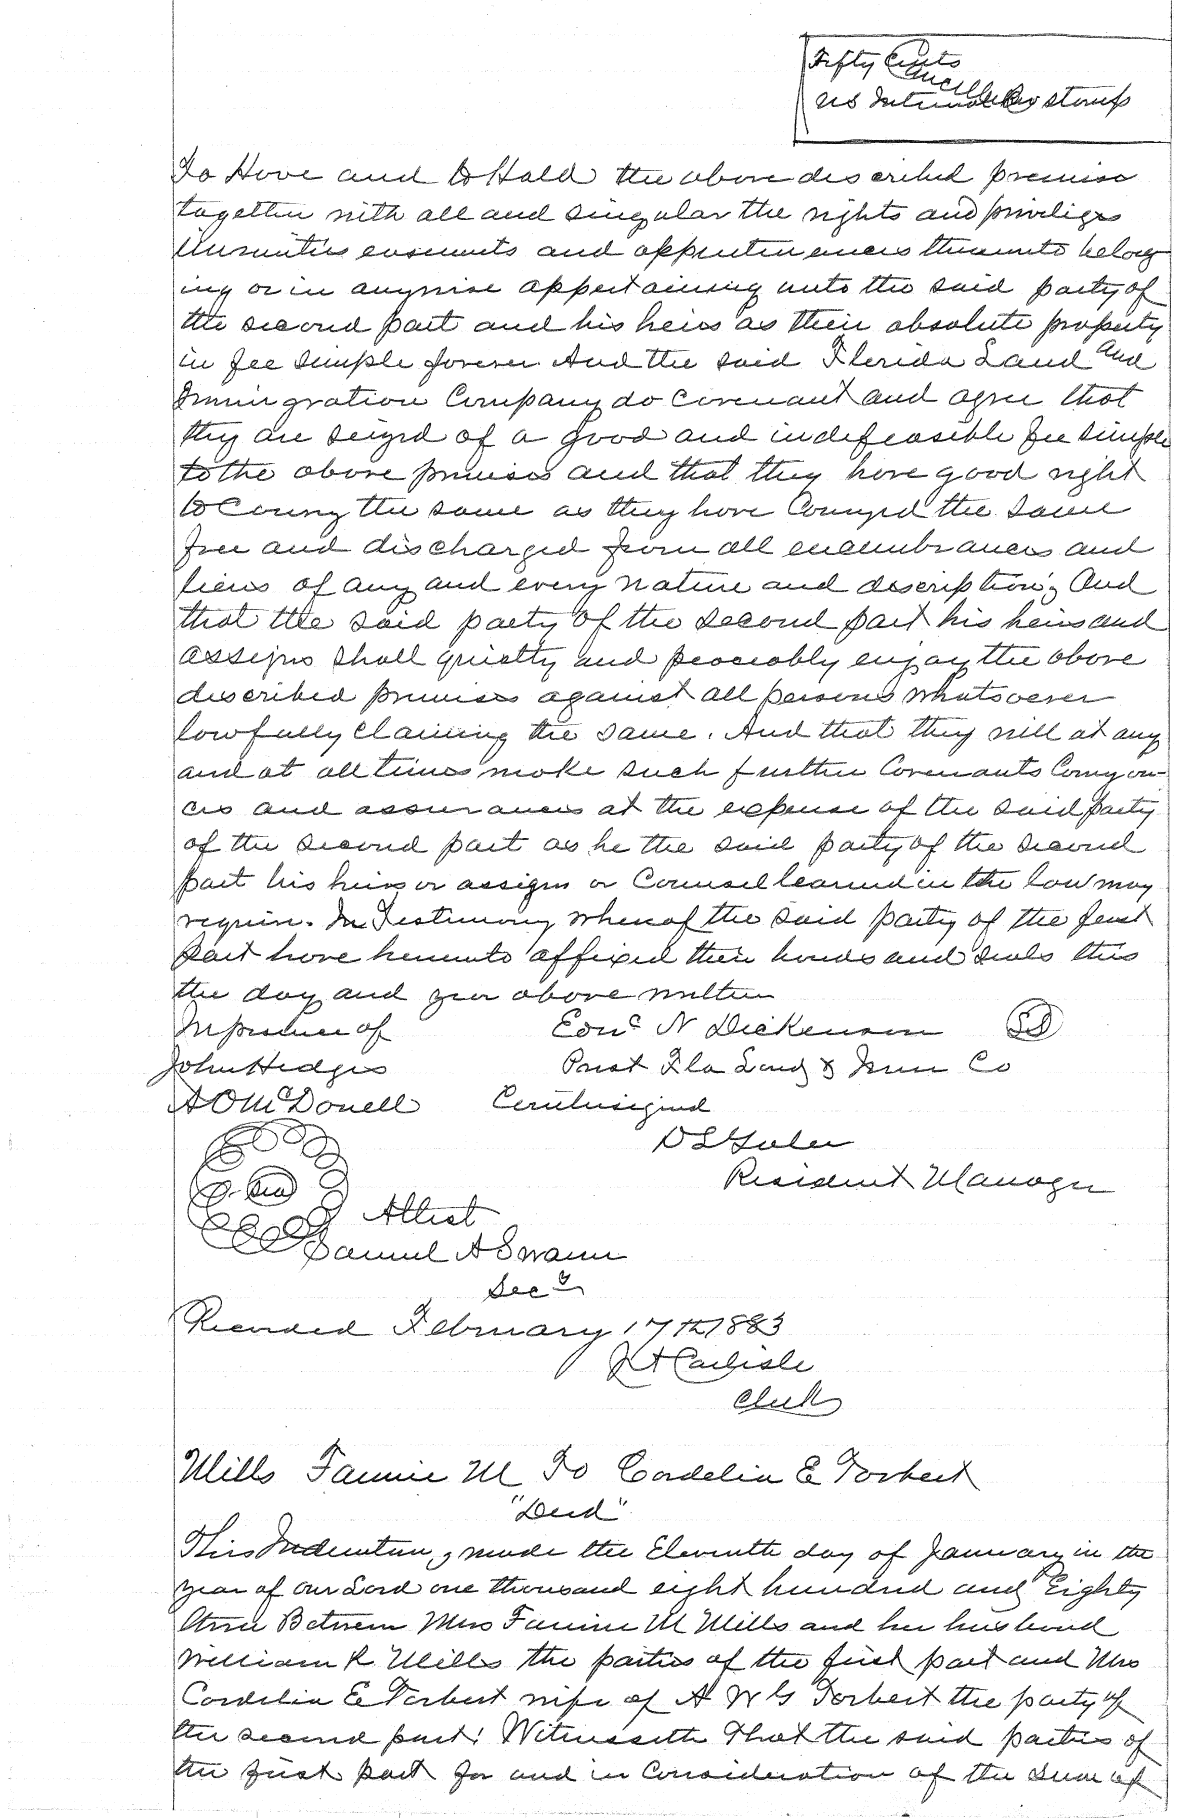 Fifty Cents
Cancelled
US Internal Rev stamp
To Have and to Hold the above described premises
together with all and singular the rights and priviliges
immunities easements and appurtenances thereunto belong
ing or in anywise appertaining unto the said party of
the second part and his heirs as their absolute property
in fee simple forever. And the said Florida Land and
Immigration Company do covenant and agree that
they are seized of a good and indefeasible fee simple
to the above premises and that they have good right
to convey the same as they have conveyed the same
free and discharged from all encumbrances and
liens of any and every nature and description; And
that the said party of the second part his heirs and
assigns shall quietly and peaceably enjoy the above
described premises against all persons whatsoever
lawfully claiming the same. And that they will at any
and at all times make such further covenants conveyan-
ces and assurances at the expense of the said party
of the second part as he the said party of the second
part his heirs or assigns or Counsel learned in the law may
require. In Testimony whereof the said party of the first
part have hereunto affixed their hands and seals this
the day and year above written
In presence of Edwd N Dickerson
John Hedges Prest Fla Land & Imm Co
A O McDonell Countersigned
Resident Manager
Sea
Attest
Samuel A Swann
Secy
Recorded February 17th 1883
Carlisle
Clerk
Mills Fannie M To Cordelia E Torbert
"Deed"
This Indenture, made the Eleventh day of January in the
year of our Lord one thousand eight hundred and Eighty
three Between Mrs Fannie M Mills and her husband
William R Mills the parties of the first part and Mrs
Cordelia E Torbert wife of A W G Torbert the party of
the second part: Witnesseth That the said parties of
the first part for and in Consideration of the sum of